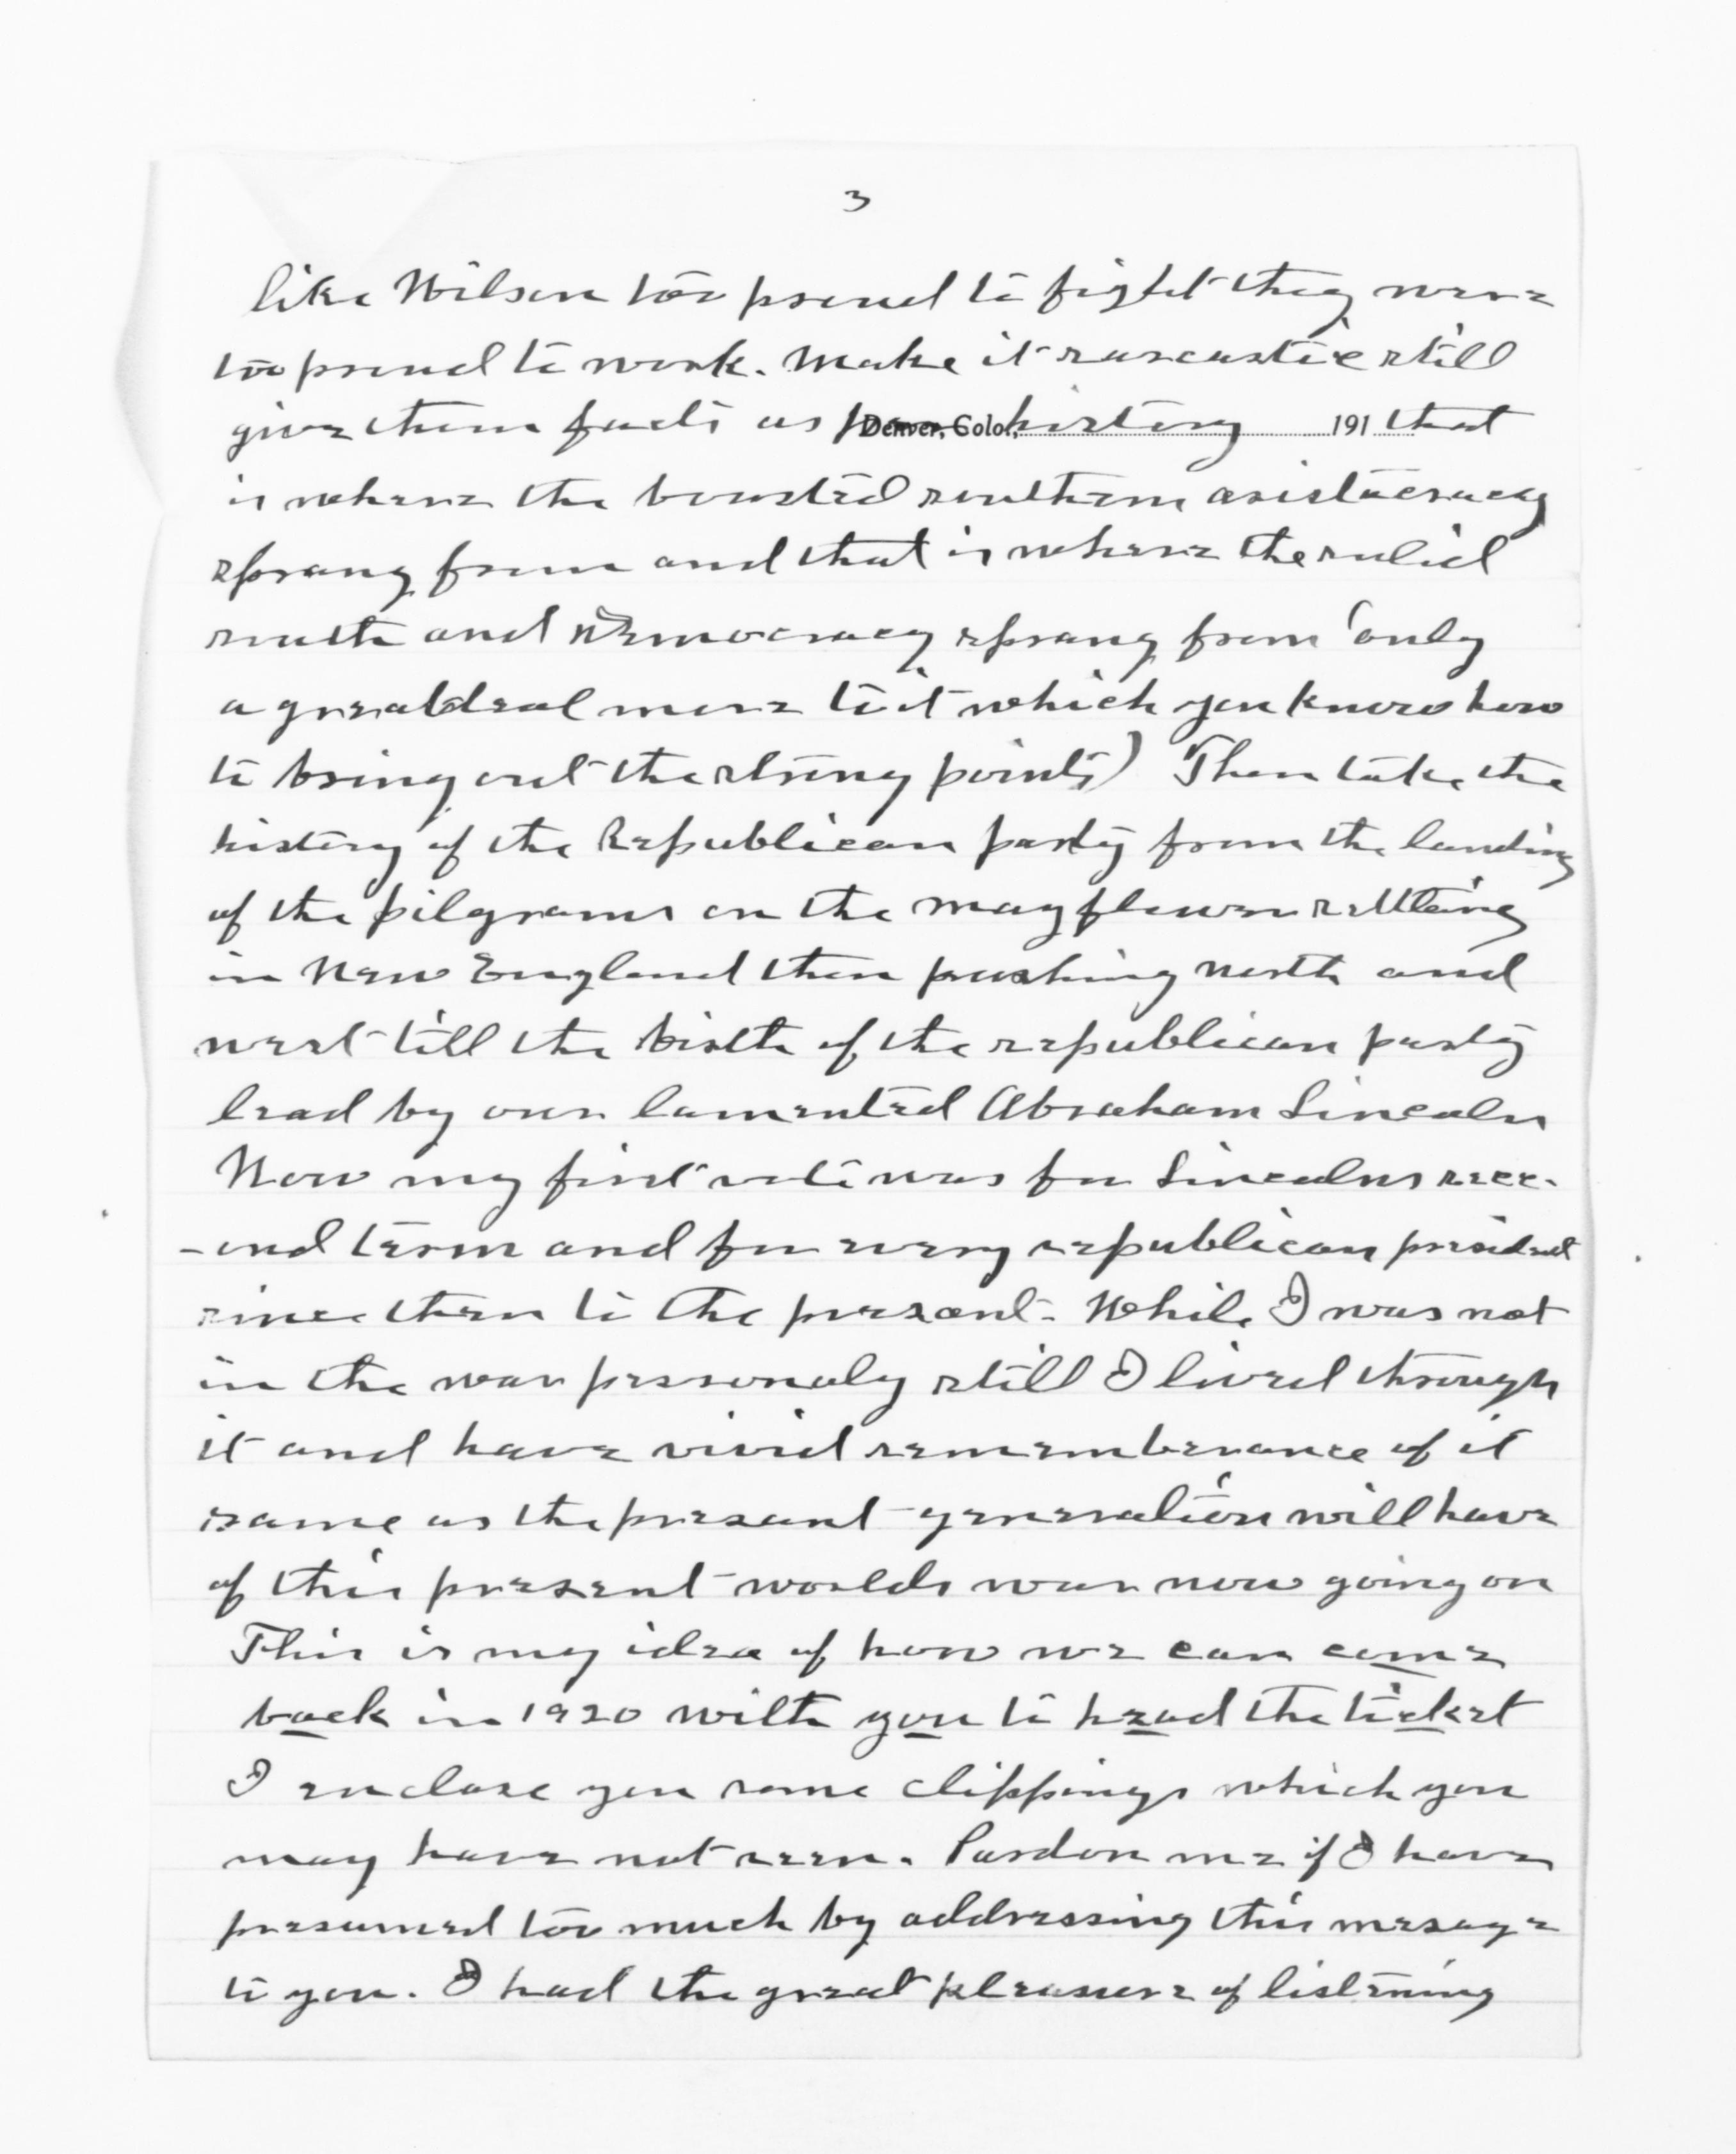 3
like Wilson too proud to fight they were
too proud to work. Make it sarcastic still
give them facts as per history that
Denver, Colo., 191
is where the boasted southern aristocracy
sprang from and that is where the solid
south and Democracy sprang from (only
a great deal more to it which you know how
to bring out the strong points) Then take the
history of the Republican party from the landing
of the pilgrams on the mayflower settleing
in New England then pushing north and
west till the birth of the republican party
lead by our lamented Abraham Lincoln
Now my first vote was for Lincolns sec-
-ond term and for every republican president
since then to the present. While I was not
in the war personaly still I lived through
it and have vivid rememberance of it
same as the present generation will have
of this present worlds war now going on
This is my idea of how we can come
back in 1920 with you to head the ticket
I enclose you some clippings which you
may have not seen. Pardon me if I have
presumed too much by addressing this mesage
to you. I had the great pleasure of listening